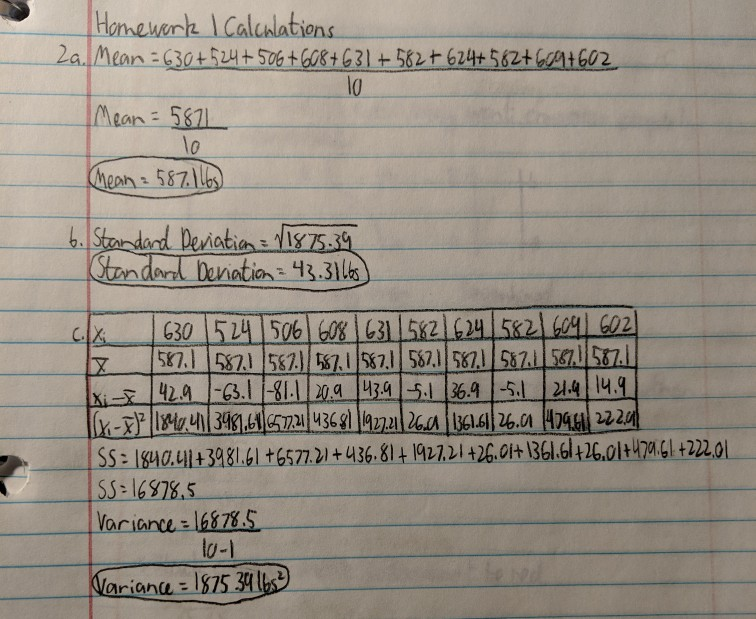 Homework 1 Calculations
2a. Mean = 630+524+506+608+631+582+624+582+609+602
10
Mean = 5871
10
Mean = 587.1lbs
b. Standard Deviation = √1875.39
Standard Deviation = 43.31lbs
c. xᵢ 630 524 506 608 631 582 624 582 609 602
x̄ 587.1 587.1 587.1 587.1 587.1 587.1 587.1 587.1 587.1 587.1
xᵢ-x̄ 42.9 -63.1 -81.1 20.9 43.9 -5.1 36.9 -5.1 21.9 14.9
(xᵢ-x̄)² 1840.41 3981.61 6577.21 436.81 1927.21 26.01 1361.61 26.01 479.61 222.01
SS=1840.41+3981.61+6577.21+436.81+1927.21+26.01+1361.61+26.01+479.61+222.01
SS=16878.5
Variance = 16878.5
10-1
Variance = 1875.39lbs²